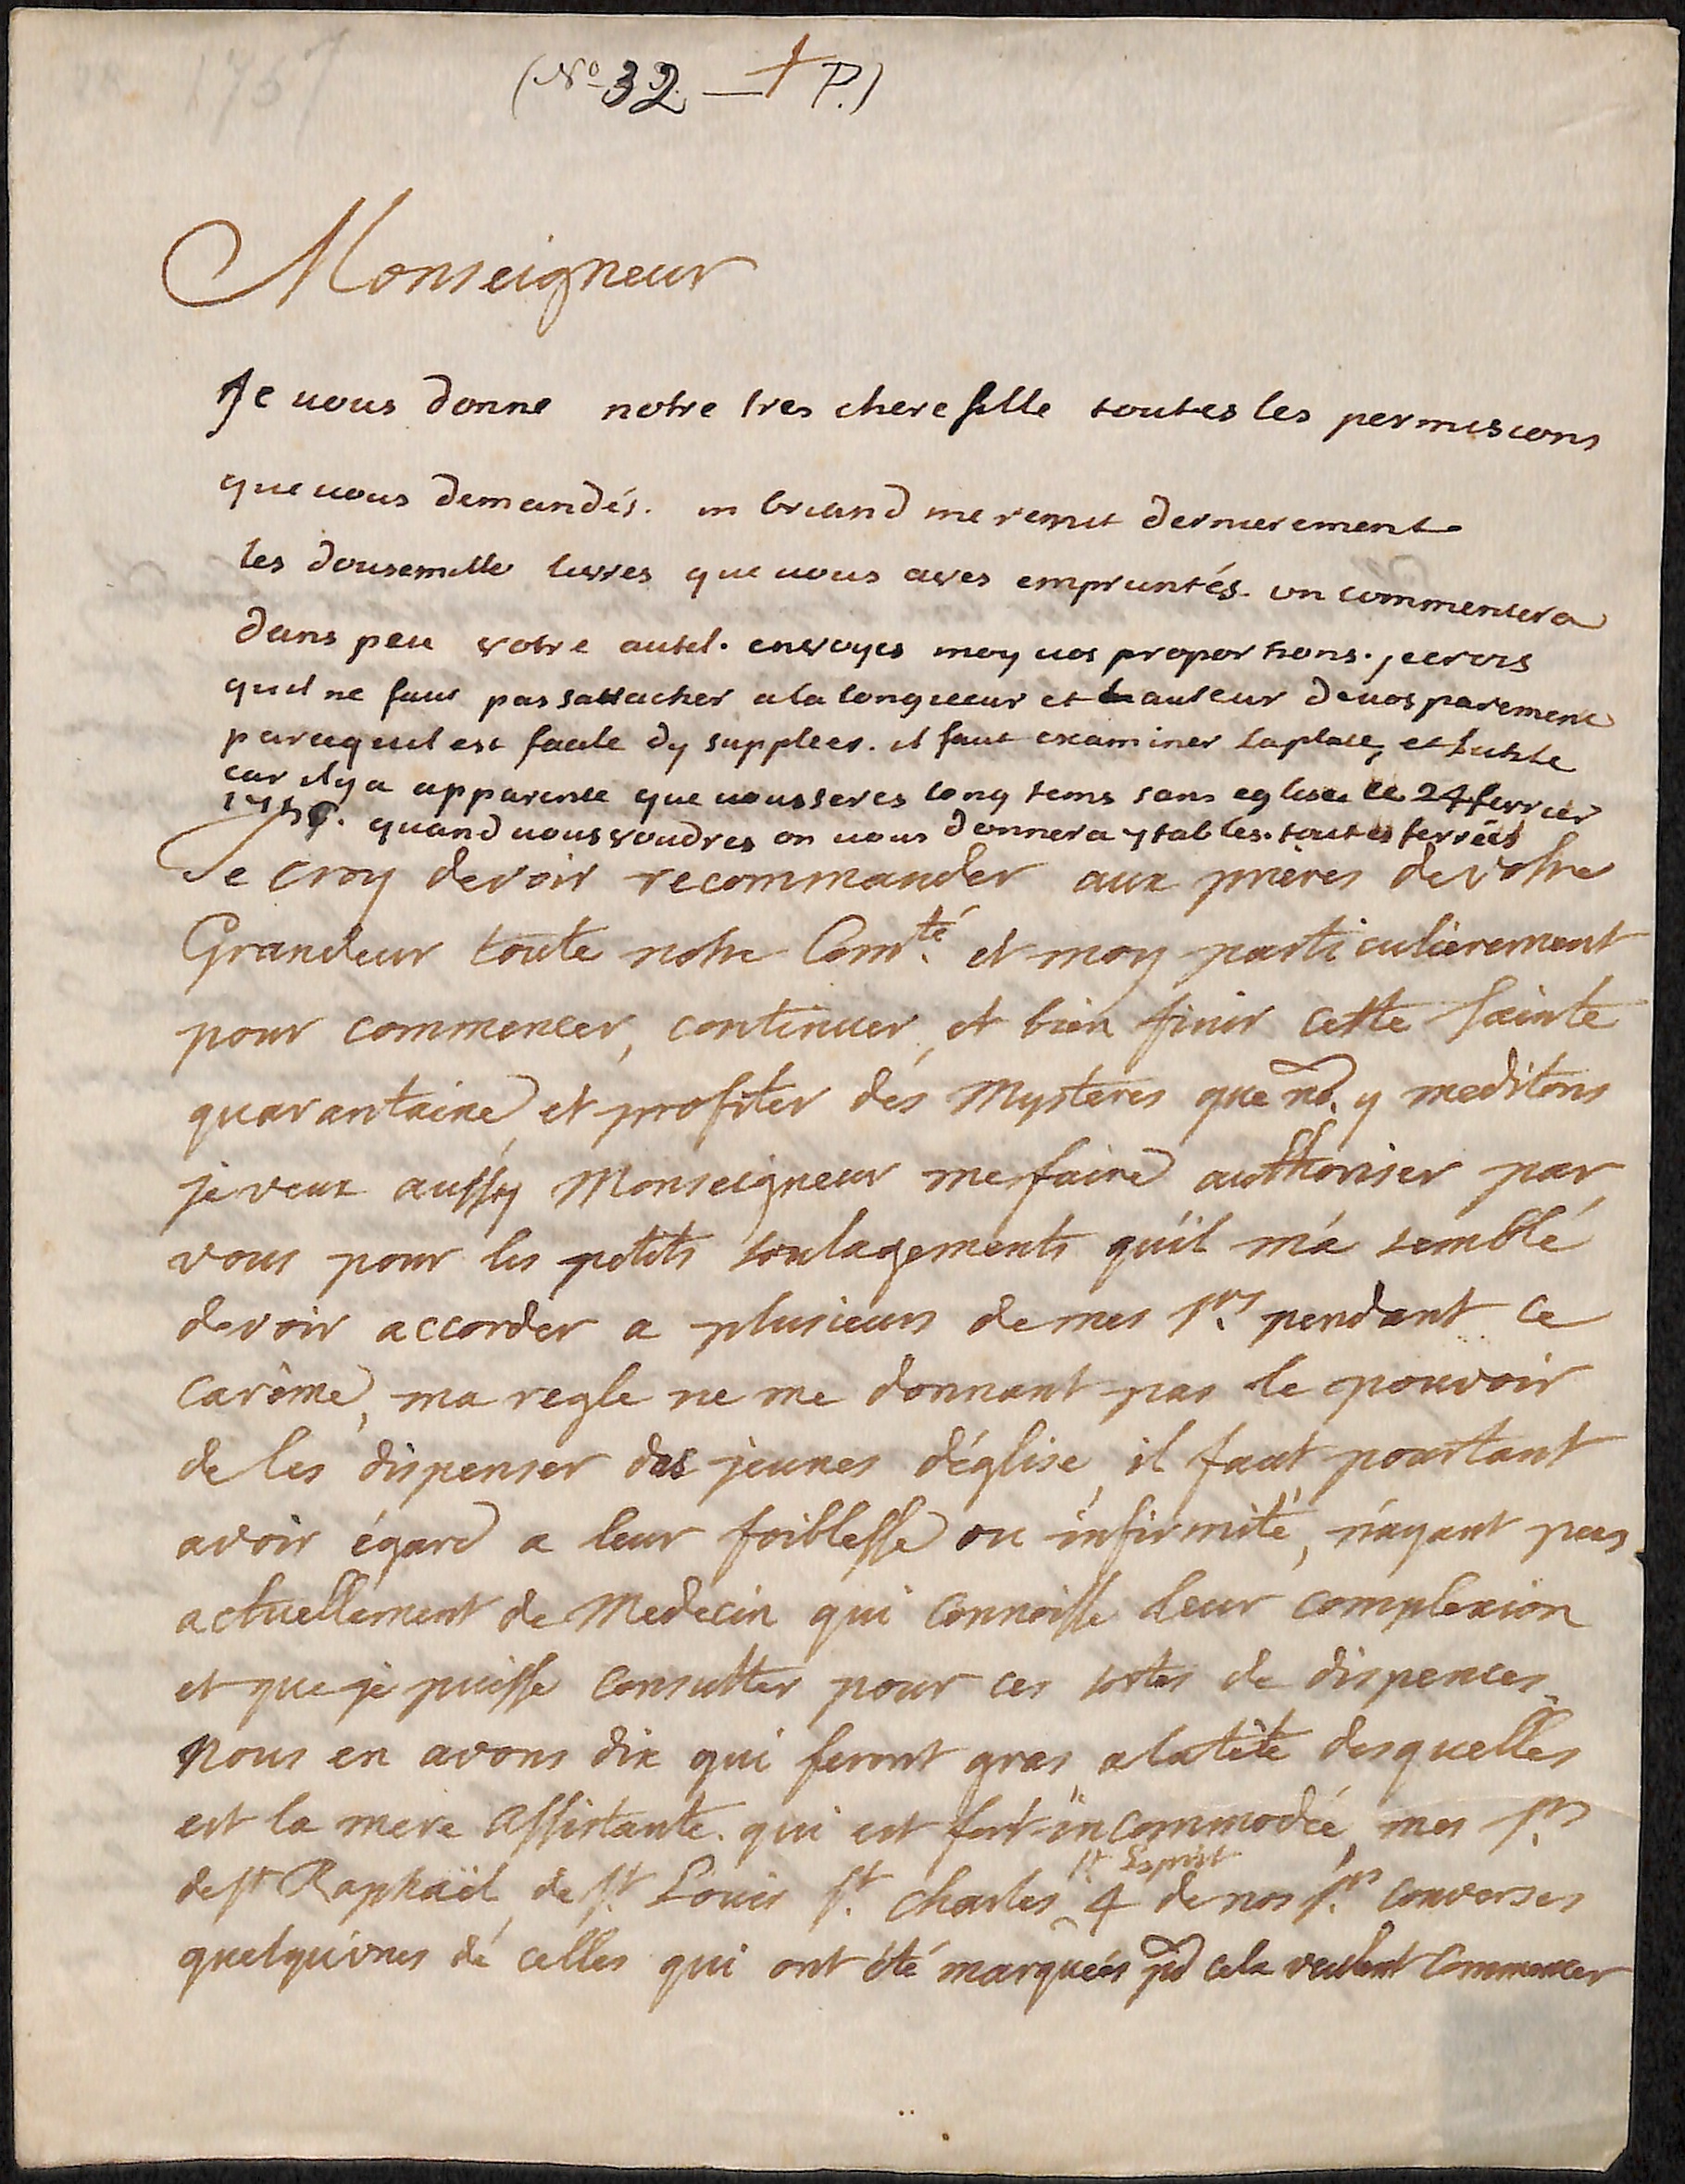 (No 32. — + P.)
Monseigneur
Je vous donne notre tres chere fille toutes les permiscions
que vous demandés. m briand me remit dernierement
les dousemille livres que vous aves empruntés. on commencera
dans peu votre autel. envoyes moy vos proportions. je crois
quil ne faut pas sattacher a la longueur et hauteur de vos parement
parcequil est facile dy supplees. il faut examiner la place, et lutile
car il y a apparence que vous seres long tems sans eglise. ce 24 fevrier
quand vous voudres on vous donnera 4 tables. toutes ferrées
Je croy devoir recommander aux prieres de votre
Grandeur toute notre Com.té et moy particulierement
pour commencer, continuer, et bien finir cette sainte
quarantaine, et profiter des Mysteres que ns. y meditons
je veux aussy Monseigneur me faire authoriser par
vous pour les petits soulagements qu'il m'a semblé
devoir accorder a plusieurs de mes s.rs pendant ce
carême, ma regle ne me donnant pas le pouvoir
de les dispenser des jeunes d'église, il faut pourtant
avoir égard a leur foiblesse ou infirmité, n'ayant pas
actuellement de Medecin qui connoisse leur complexion
et que je puisse consulter pour ces sortes de dispences
Nous en avons dix qui feront gras, a la tête desquelles
est la mere assistante. qui est fort incommodée, mes s.rs
St Esprit
de st Raphaël, de st. Louis st. charles 4 de nos s.rs converses
quelqu'unes de celles qui ont été marquées pr cela veulent commencer